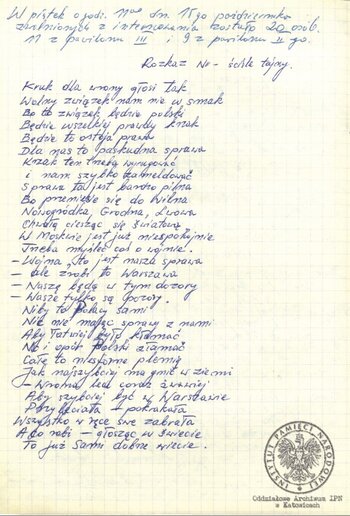 W piątek o godz. 11⁰⁰ dn. 15go października
zwolnionych z internowania zostało 20 osób.
11 z pawilonu III i 9 z pawilonu II go.
Rozkaz Nr - ściśle tajny.
Kruk dla wrony głosi tak
Wolny związek nam nie w smak
Bo to związek będzie polski
Będzie wszelkiej prawdy krzak
Będzie to ostoja prawa
Dla nas to paskudna sprawa
Krzak ten trzeba wyrugować
i nam szybko zameldować
Sprawa ta jest bardzo pilna
Bo przeniesie się do Wilna
Nowogródka, Grodna, Lwowa
Chwałą ciesząc się światową
W Moskwie jest już niespokojnie
Trzeba myśleć coś o wojnie.
- Wojna to jest nasza sprawa
- ale zrobi to Warszawa
- Nasze będą w tym dozory
- Wasze tylko są pozory.
Niby to Polacy sami
Nic nie mając sprawy z nami
Aby łatwiej było kłamać
No i opór Polski złamać
Całe to niesforne plemię
Jak najszybciej ma gnić w ziemi
- Wrona lecz coraz żwawiej
Aby szybciej być w Warszawie
Przyleciała - pokrakała
Wszystko w ręce swe zabrała
A co robi - głosząc w świecie
To już sami dobrze wiecie.
INSTYTUT PAMIĘCI NARODOWEJ
Oddziałowe Archiwum IPN
w Katowicach